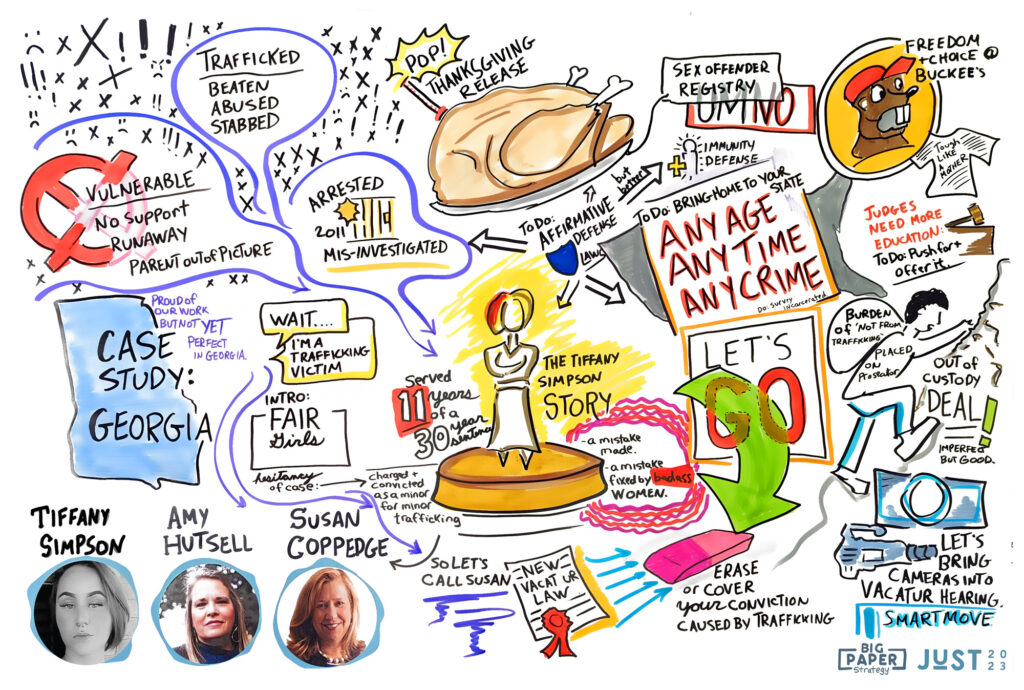 TRAFFICKED
BEATEN
ABUSED
STABBED
VULNERABLE
NO SUPPORT
RUNAWAY
PARENT OUT OF PICTURE
ARRESTED
2011
MIS-INVESTIGATED
POP!
THANKSGIVING
RELEASE
SEX OFFENDER
REGISTRY
UM NO
FREEDOM
+ CHOICE @
BUCKEE'S
Tough
LIKE
A
MOTHER
IMMUNITY
DEFENSE
but
better
TO DO:
AFFIRMATIVE
DEFENSE
LAWS
TO DO: BRING HOME TO YOUR
STATE
ANY AGE
ANY TIME
ANY CRIME
DO: SURVEY
INCARCERATED
JUDGES
NEED MORE
EDUCATION:
TO DO: Push for +
offer it.
CASE
STUDY:
GEORGIA
PROUD OF
OUR WORK
BUT NOT YET
PERFECT
IN GEORGIA.
WAIT....
I'M A
TRAFFICKING
VICTIM
INTRO:
FAIR
Girls
hesitancy
of case:
charged +
convicted
as a minor
for minor
trafficking
Served
11 years
of a
30 year
sentence
THE TIFFANY
SIMPSON
STORY
-a mistake
made.
-a mistake
fixed by badass
WOMEN.
LET'S
GO
BURDEN
OF 'NOT FROM
TRAFFICKING'
PLACED
ON
Prosecutor
OUT OF
CUSTODY
DEAL!
IMPERFECT
BUT GOOD.
TIFFANY
SIMPSON
AMY
HUTSELL
SUSAN
COPPEDGE
SO LET'S
CALL SUSAN
NEW
VACATUR
LAW
ERASE
or COVER
your CONVICTION
CAUSED BY TRAFFICKING
LET'S
BRING
CAMERAS INTO
VACATUR HEARING.
SMART MOVE
BIG
PAPER
Strategy
JUST 20
23